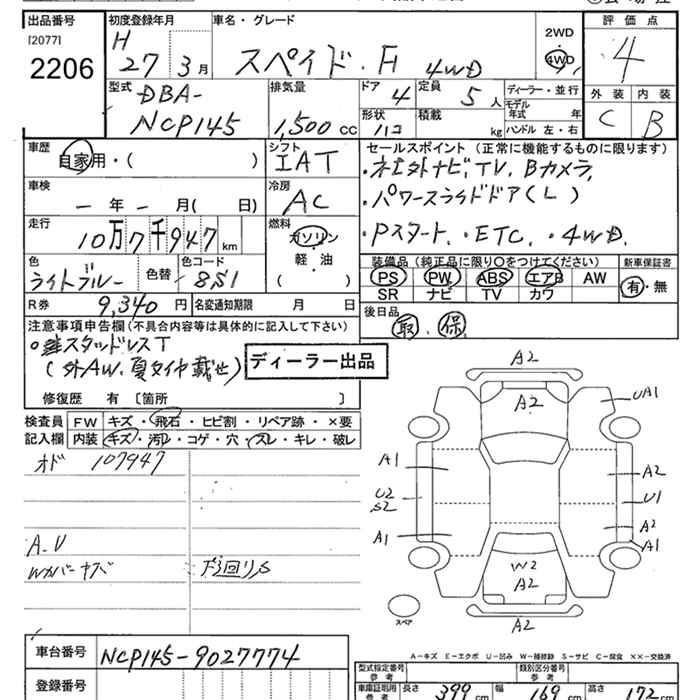 出品番号 初度登録年月 車名・グレード 評価点
[2077]
2206
H 27 3月 スペイド・F 4WD
2WD
4WD
4
型式 DBA-
NCP145
排気量
1,500 CC
ドア 4 定員 5人
形状 ハコ 積載 kg
ディーラー・並行
モデル年式 年
ハンドル 左・右
外装 内装
C B
車歴
自家用・( )
シフト
IAT
セールスポイント (正常に機能するものに限ります)
・ネエ外ナビ,TV,Bカメラ,
・パワースライドドア(L)
・Pスタート,・ETC,・4WD.
車検
- 年 - 月( 日)
冷房
AC
走行
10万7千947km
燃料
ガソリン
軽・油
( )
色 ライトブルー 色替 色コード 8S1
装備品 (純正品に限り○をつけてください) 新車保証書
PS PW ABS エアB AW
SR ナビ TV カワ
有・無
R券 9,340円 名変通知期限 月 日
後日品
取. 保.
注意事項申告欄(不具合内容等は具体的に記入して下さい)
スタッドレスT
(外AW.夏タイヤ載せ)
ディーラー出品
修復歴 有 〔箇所 〕
検査員記入欄
FW キズ・飛石・ヒビ割・リペア跡・×要
内装 キズ・汚レ・コゲ・穴・スレ・キレ・破レ
オド 107947
A-V
Wカバーキズ
下回りS
A2
A2
UA1
A1
A2
U2
S2
U1
A1
A2
A1
W2
A2
A2
スペア
A-キズ E-エクボ U-凹み W-補修跡 S-サビ C-腐食 XX-交換済
車台番号 NCP145-9027774
登録番号
型式指定番号 参考
類別区分番号 参考
車庫証明用 参考 長さ 399cm 幅 169cm 高さ 172cm